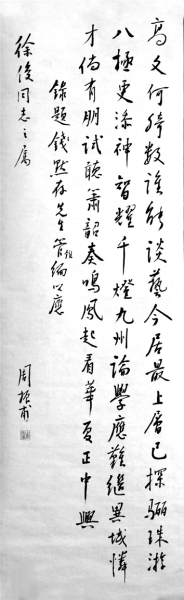 高文何绮数谁能谈艺今居最上层已探骊珠游
八极更添神智耀千灯九州论学应难继異域憐
才倘有朋试聽箫韶奏鸣凤起看華夏正中興
錄題錢默存先生管锥编以應
徐俊同志之属
周振甫